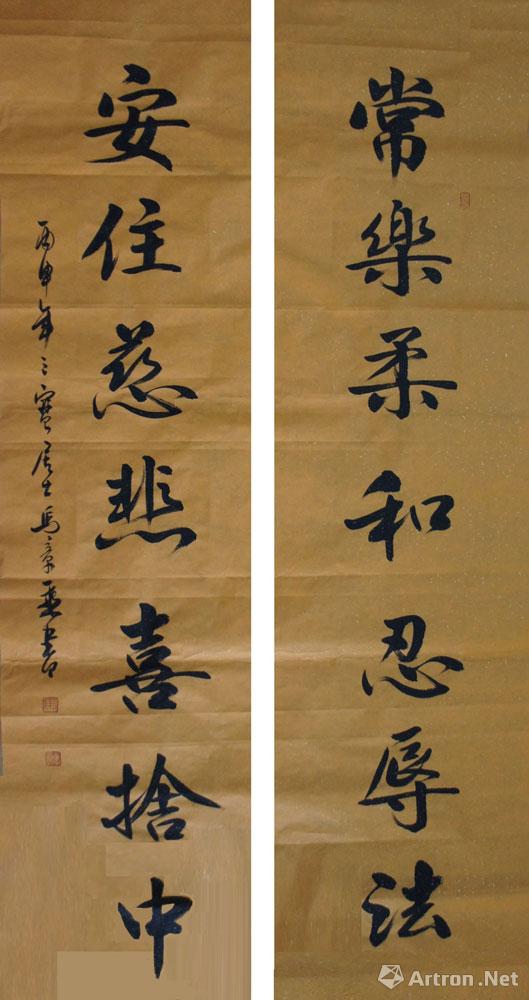 常樂柔和忍辱法
安住慈悲喜捨中
丙申年三寶居士馬章
Artron.Net